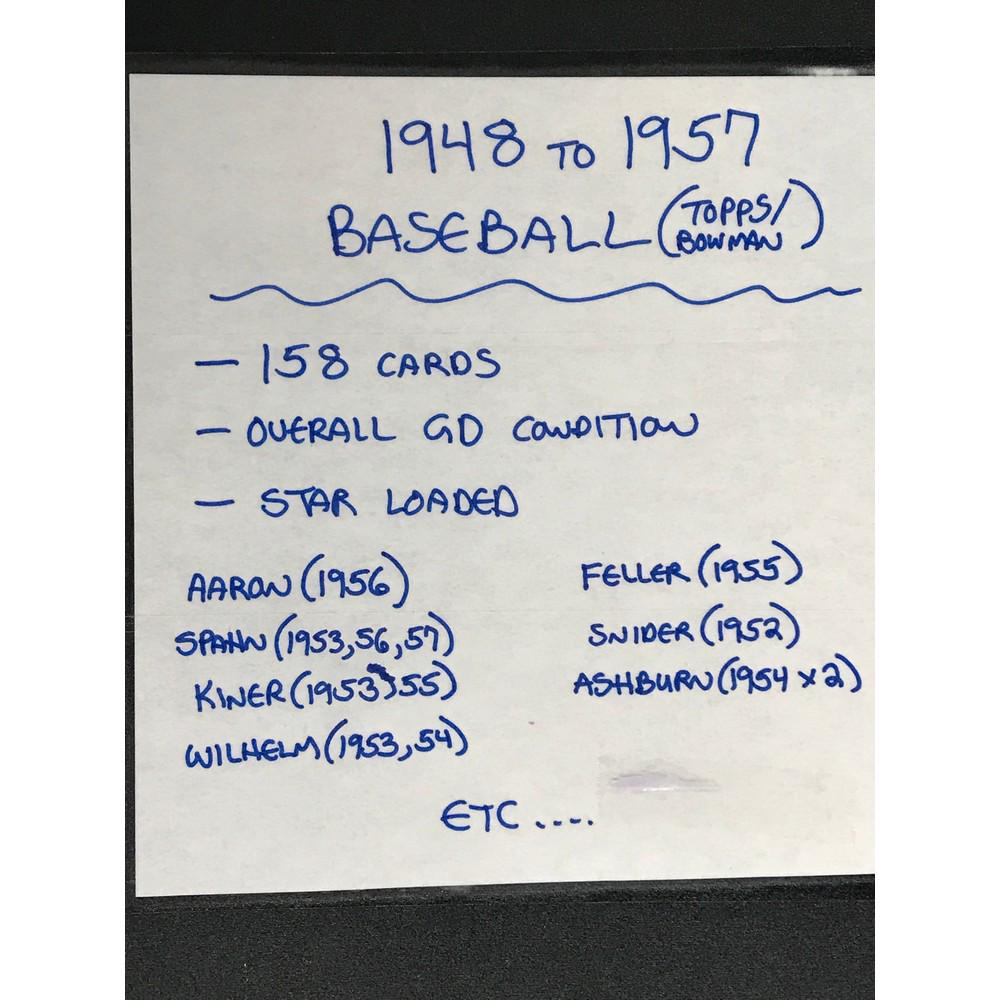 1948 TO 1957
BASEBALL (TOPPS/
BOWMAN)
— 158 CARDS
— OVERALL GD CONDITION
— STAR LOADED
AARON (1956)
SPAHN (1953,56,57)
KINER (1953,55)
WILHELM (1953,54)
FELLER (1955)
SNIDER (1952)
ASHBURN (1954 x 2)
ETC ....